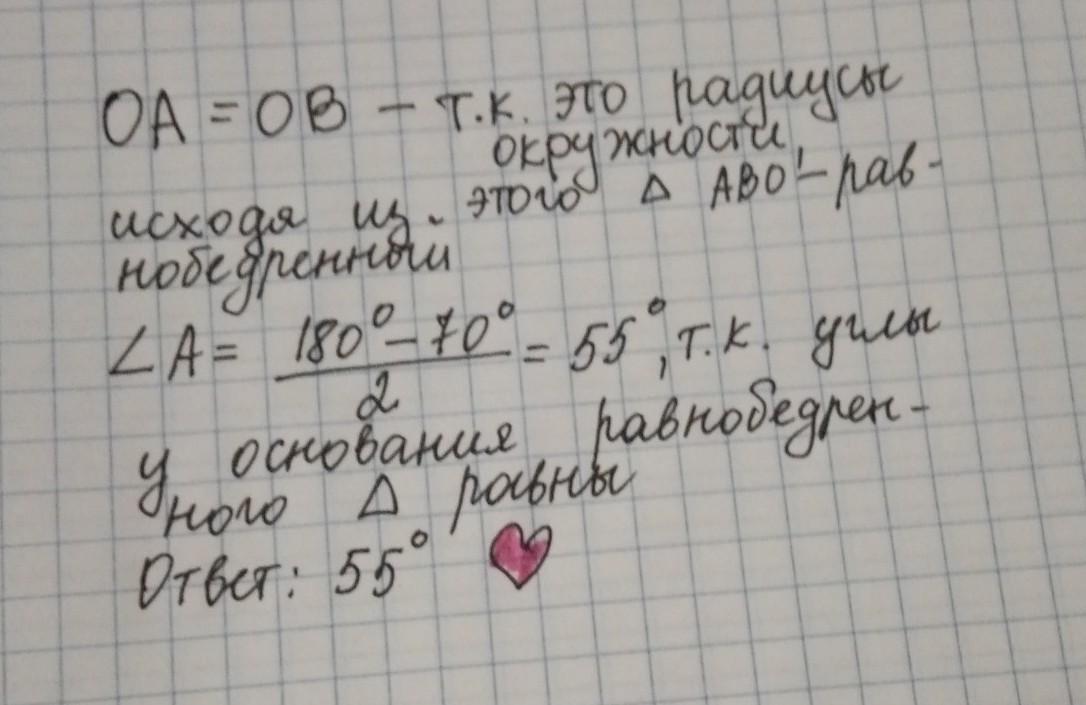 OA = OB - т.к. это радиусы
окружности,
исходя из этого Δ ABO - рав-
нобедренный
∠A = (180° - 70°)/2 = 55°, т.к. углы
у основания равнобедрен-
ного Δ равны
Ответ: 55°